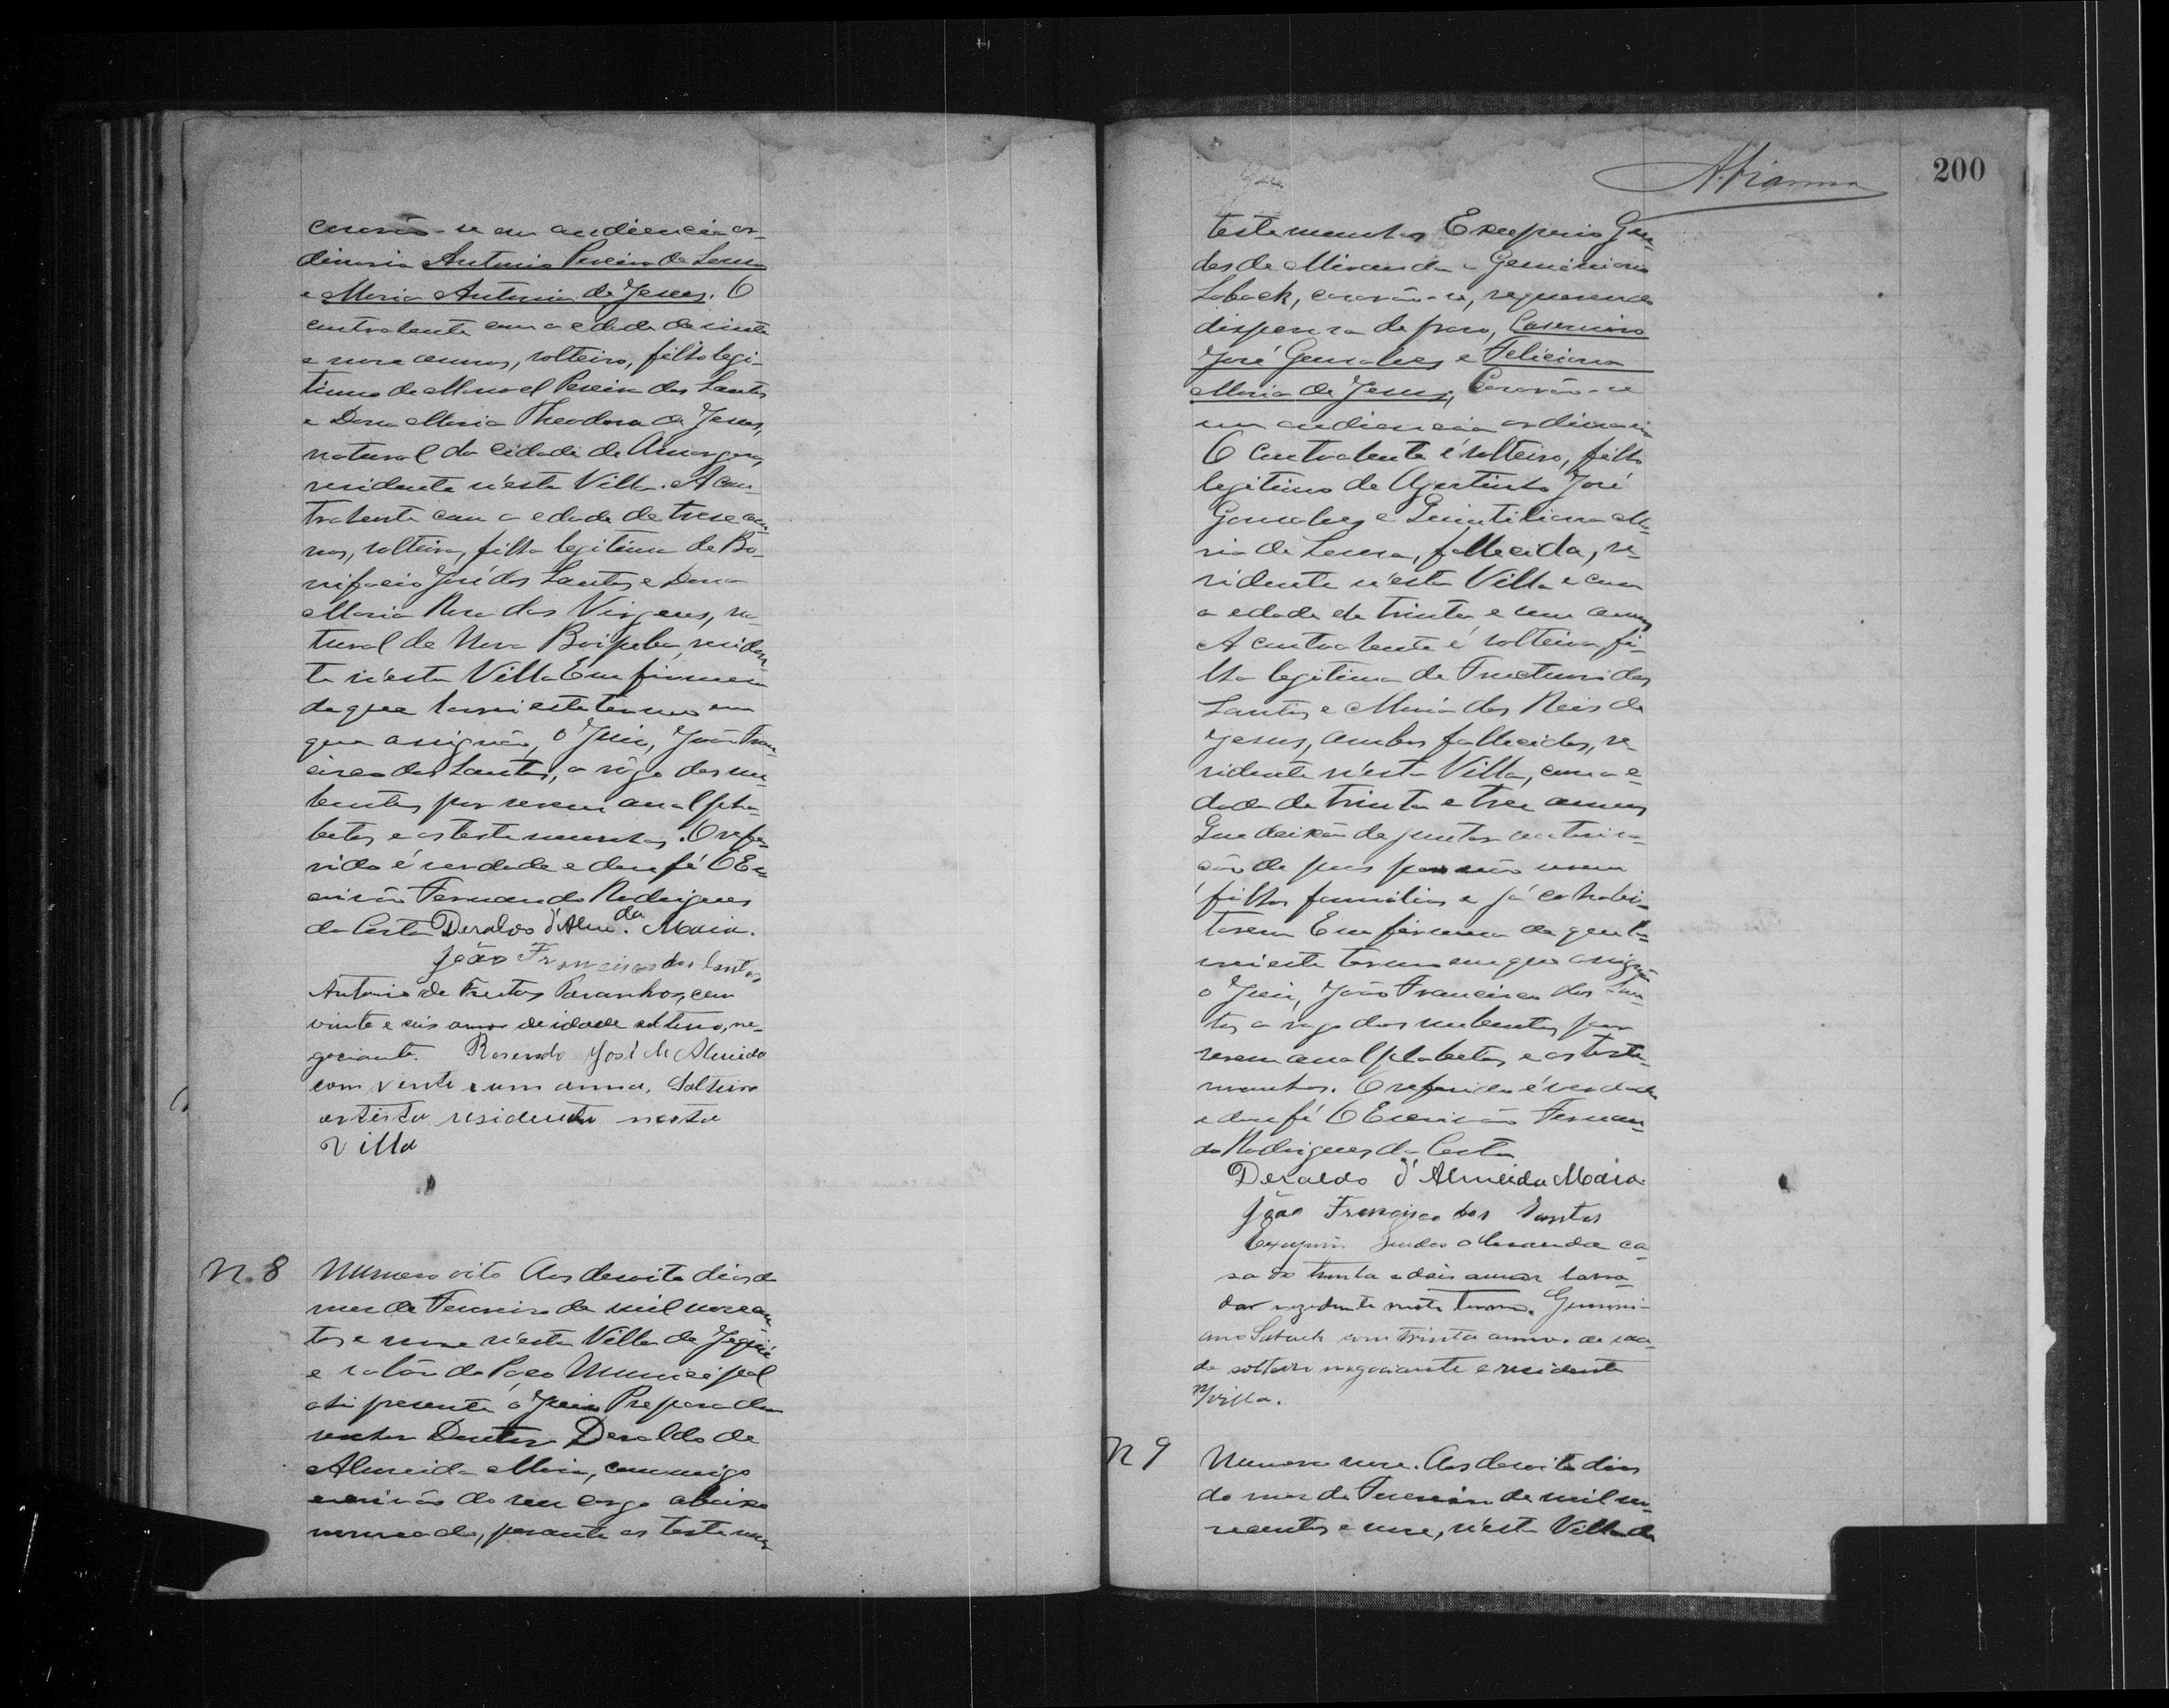 casarão-se em audiencia or-
dinaria Antonio Pereira de Lemos
e Maria Antonia de Jesus. O
contratente com a edade de vinte
e nove annos, solteiro, filho legi-
timo de Manoel Pereira dos Santos
e Dona Maria Theodora de Jesus,
natural da cidade de Amargosa,
residente n'esta Villa. A con-
tratente com a edade de treze an-
nos, solteira, filha legitima de Bo-
nifacio José dos Santos e Dona
Maria Rosa das Virgens, na-
tural de Nova Boipeba, residen-
te n'esta Villa Em firmeza
do que lavrei este termo em
que assignão, o Juiz, João Fran-
cisco dos Santos, a rôgo dos nu-
bentes por serem analpha-
betos e as testemunhas. O refe-
rido é verdade e dou fé O Es-
crivão Fernando Rodrigues
da Costa Deraldo d'Alm.da Maia.
João Francisco dos Santos
Antonio de Freitas Paranhos, com
vinte e seis annos de idade solteiro, ne-
gociante. Rosendo José de Almeida
com vinte e um annos, Solteiro
artista residente nesta
Villa
N. 8
Numero oito Aos desoito dias do
mes de Fevereiro de mil novecen-
tos e nove n'esta Villa de Jequié
e salão do Paço Municipal
ahi presente o Juiz Preparador
senhor Doutor Deraldo de
Almeida Maia, commigo
escrivão do seu cargo abaixo
nomeado, perante as testemu-
200
testemunhas Exuperio Gue-
des de Miranda e Geminiano
Saback, casarão-se, requerendo
dispensa de praso, Casemiro
José Gonsalves e Feliciana
Maria de Jesus, Casarão-se
em audiencia ordinaria
O contratente é solteiro, filho
legitimo de Agostinho José
Gonsalves e Quintiliana Ma-
ria de Lemos, fallecida, re-
sidente n'esta Villa e com
a edade de trinta e um annos
A contratente é solteira, fi-
lha legitima de Fructuoso dos
Santos e Maria dos Reis de
Jesus, ambos fallecidos, re-
sidente n'esta Villa, com a e-
dade de trinta e tres annos
Que deixão de juntar autorisa-
ção de paes por não serem
filhos familias e já cohabi-
tarem Em firmeza do que la-
vrei este termo em que assignão
o Juiz, João Francisco dos San-
tos a rogo dos nubentes por
serem analphabetos e as teste-
munhas. O referido é verdade
e dou fé O Escrivão Fernan-
do Rodrigues da Costa
Deraldo d'Almeida Maia.
João Francisco dos Santos
Exuperio Guedes Miranda ca-
sado trinta e dois annos lavra-
dor rezidente neste termo. Gemini-
ano Saback com trinta annos de ida-
de solteiro negociante e residente
n/villa.
N 9
Numero nove. Aos desoito dias
do mes de Fevereiro de mil no-
vecentos e nove, n'esta Villa de